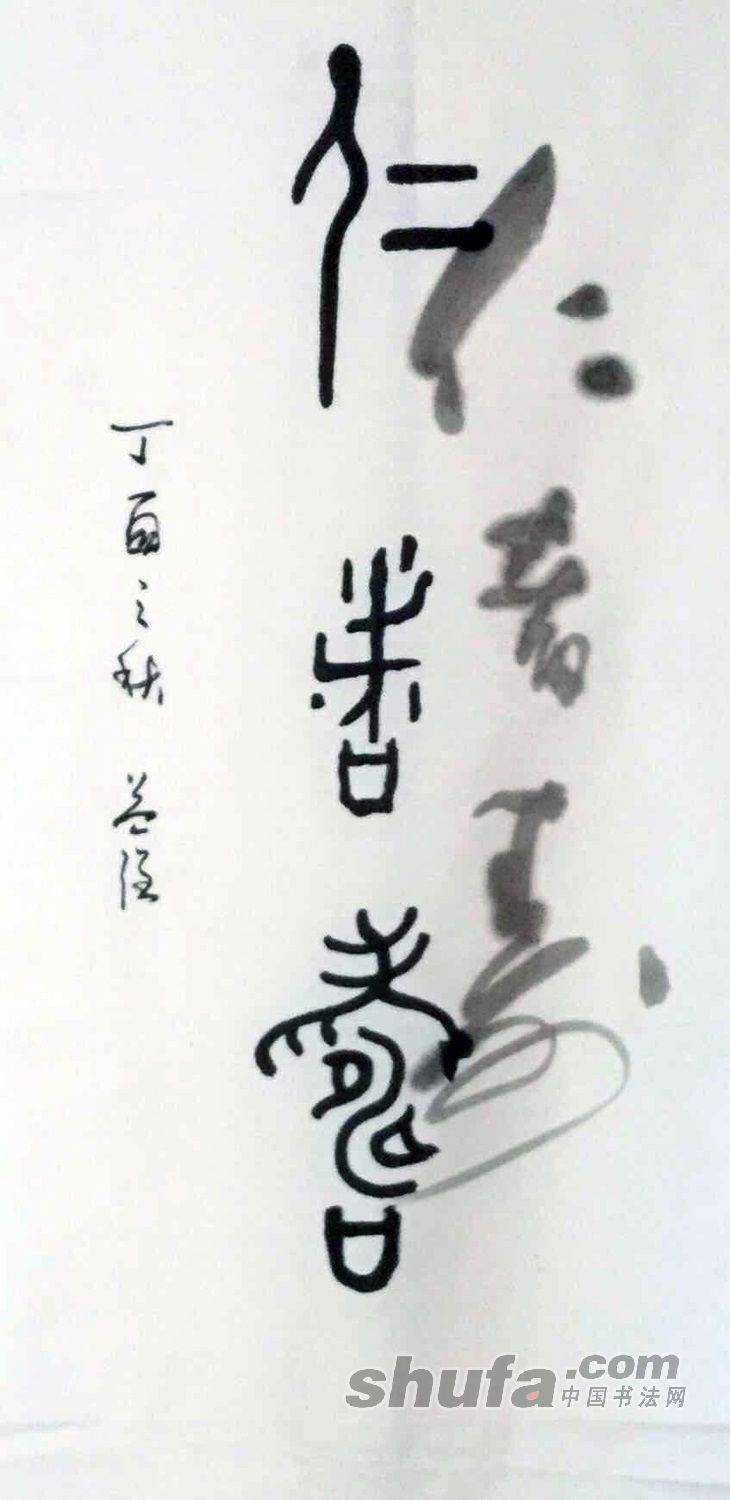 仁者寿
仁者壽
丁酉之秋
shufa.com
中国书法网